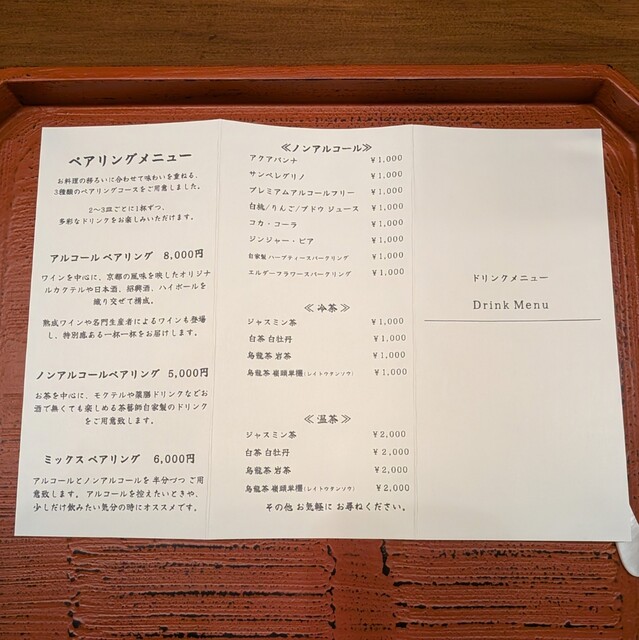 ペアリングメニュー
お料理の移ろいに合わせて味わいを重ねる、
3種類のペアリングコースをご用意しました。
2〜3皿ごとに1杯ずつ、
多彩なドリンクをお楽しみいただけます。
アルコール ペアリング 8,000円
ワインを中心に、京都の風味を映したオリジナ
ルカクテルや日本酒、紹興酒、ハイボールを
織り交ぜて構成。
熟成ワインや名門生産者によるワインも登場
し、特別感ある一杯一杯をお届けします。
ノンアルコールペアリング 5,000円
お茶を中心に、モクテルや薬膳ドリンクなどお
酒で無くても楽しめる茶藝師自家製のドリンク
をご用意致します。
ミックス ペアリング 6,000円
アルコールとノンアルコールを 半分づつ ご用
意致します。 アルコールを控えたいときや、
少しだけ飲みたい気分の時にオススメです。
≪ノンアルコール≫
アクアパンナ ¥1,000
サンペレグリノ ¥1,000
プレミアムアルコールフリー ¥1,000
白桃/りんご/ブドウ ジュース ¥1,000
コカ・コーラ ¥1,000
ジンジャー・ビア ¥1,000
自家製 ハーブティースパークリング ¥1,000
エルダーフラワースパークリング ¥1,000
≪ 冷茶 ≫
ジャスミン茶 ¥1,000
白茶 白牡丹 ¥1,000
烏龍茶 岩茶 ¥1,000
烏龍茶 嶺頭単欉(レイトウタンソウ) ¥1,000
≪ 温茶 ≫
ジャスミン茶 ¥2,000
白茶 白牡丹 ¥2,000
烏龍茶 岩茶 ¥2,000
烏龍茶 嶺頭単欉(レイトウタンソウ) ¥2,000
その他 お気軽に お尋ねください。
ドリンクメニュー
Drink Menu